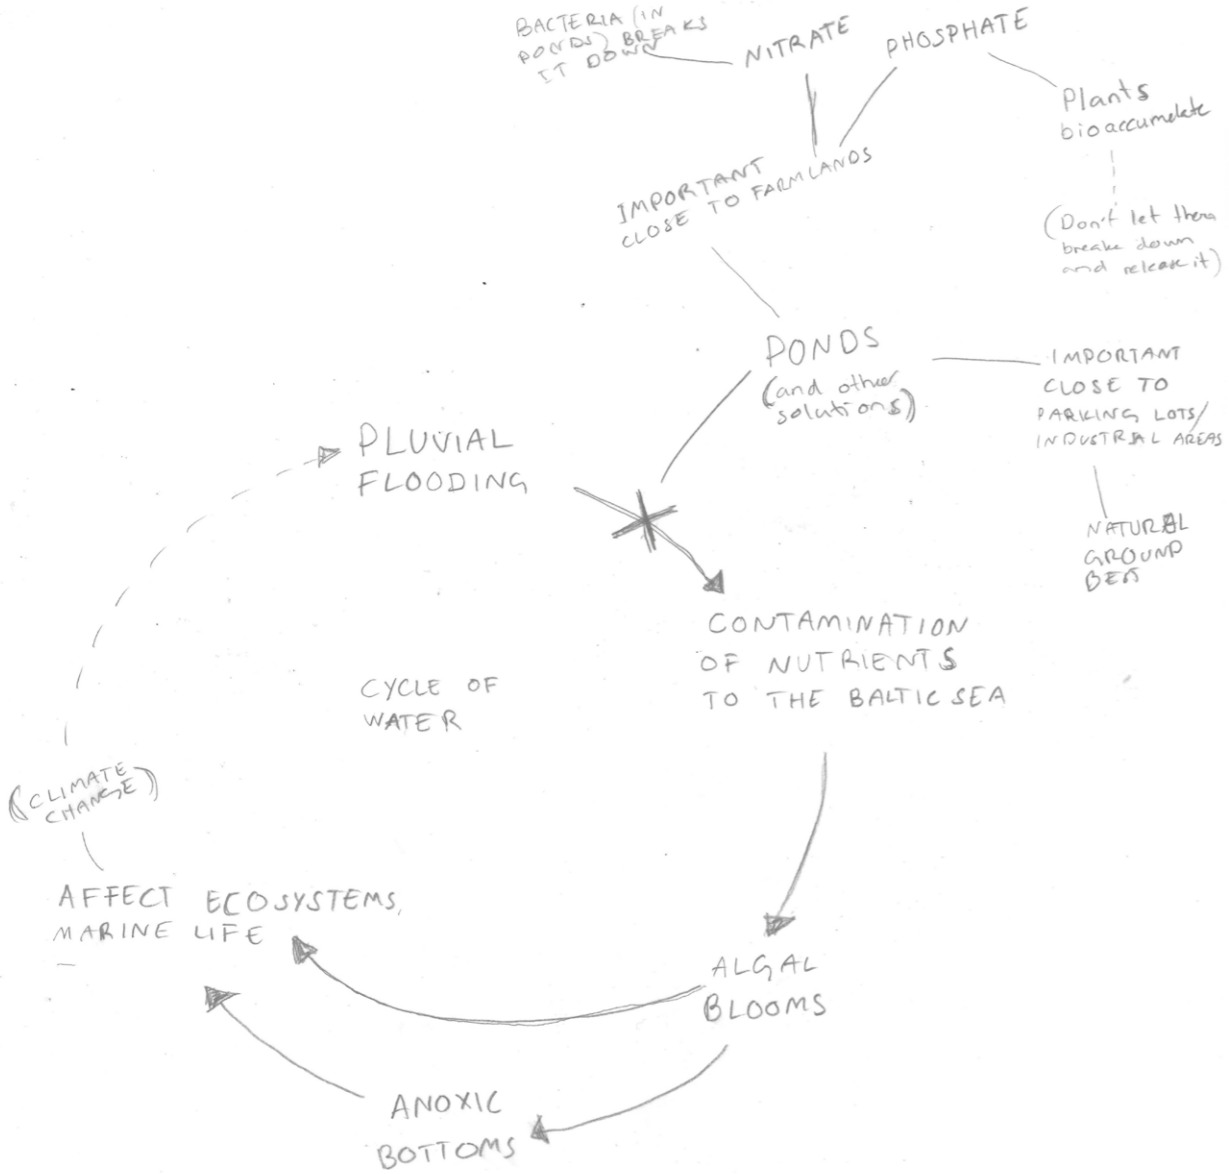 BACTERIA (IN
PONDS) BREAKS
IT DOWN
NITRATE
PHOSPHATE
Plants
bioaccumelate
(Don't let them
breake down
and release it)
IMPORTANT
CLOSE TO FARMLANDS
PONDS
(and other
solutions)
IMPORTANT
CLOSE TO
PARKING LOTS/
INDUSTRIAL AREAS
NATURAL
GROUND
BED
PLUVIAL
FLOODING
CONTAMINATION
OF NUTRIENTS
TO THE BALTIC SEA
CYCLE OF
WATER
(CLIMATE
CHANGE)
AFFECT ECOSYSTEMS,
MARINE LIFE
ALGAL
BLOOMS
ANOXIC
BOTTOMS